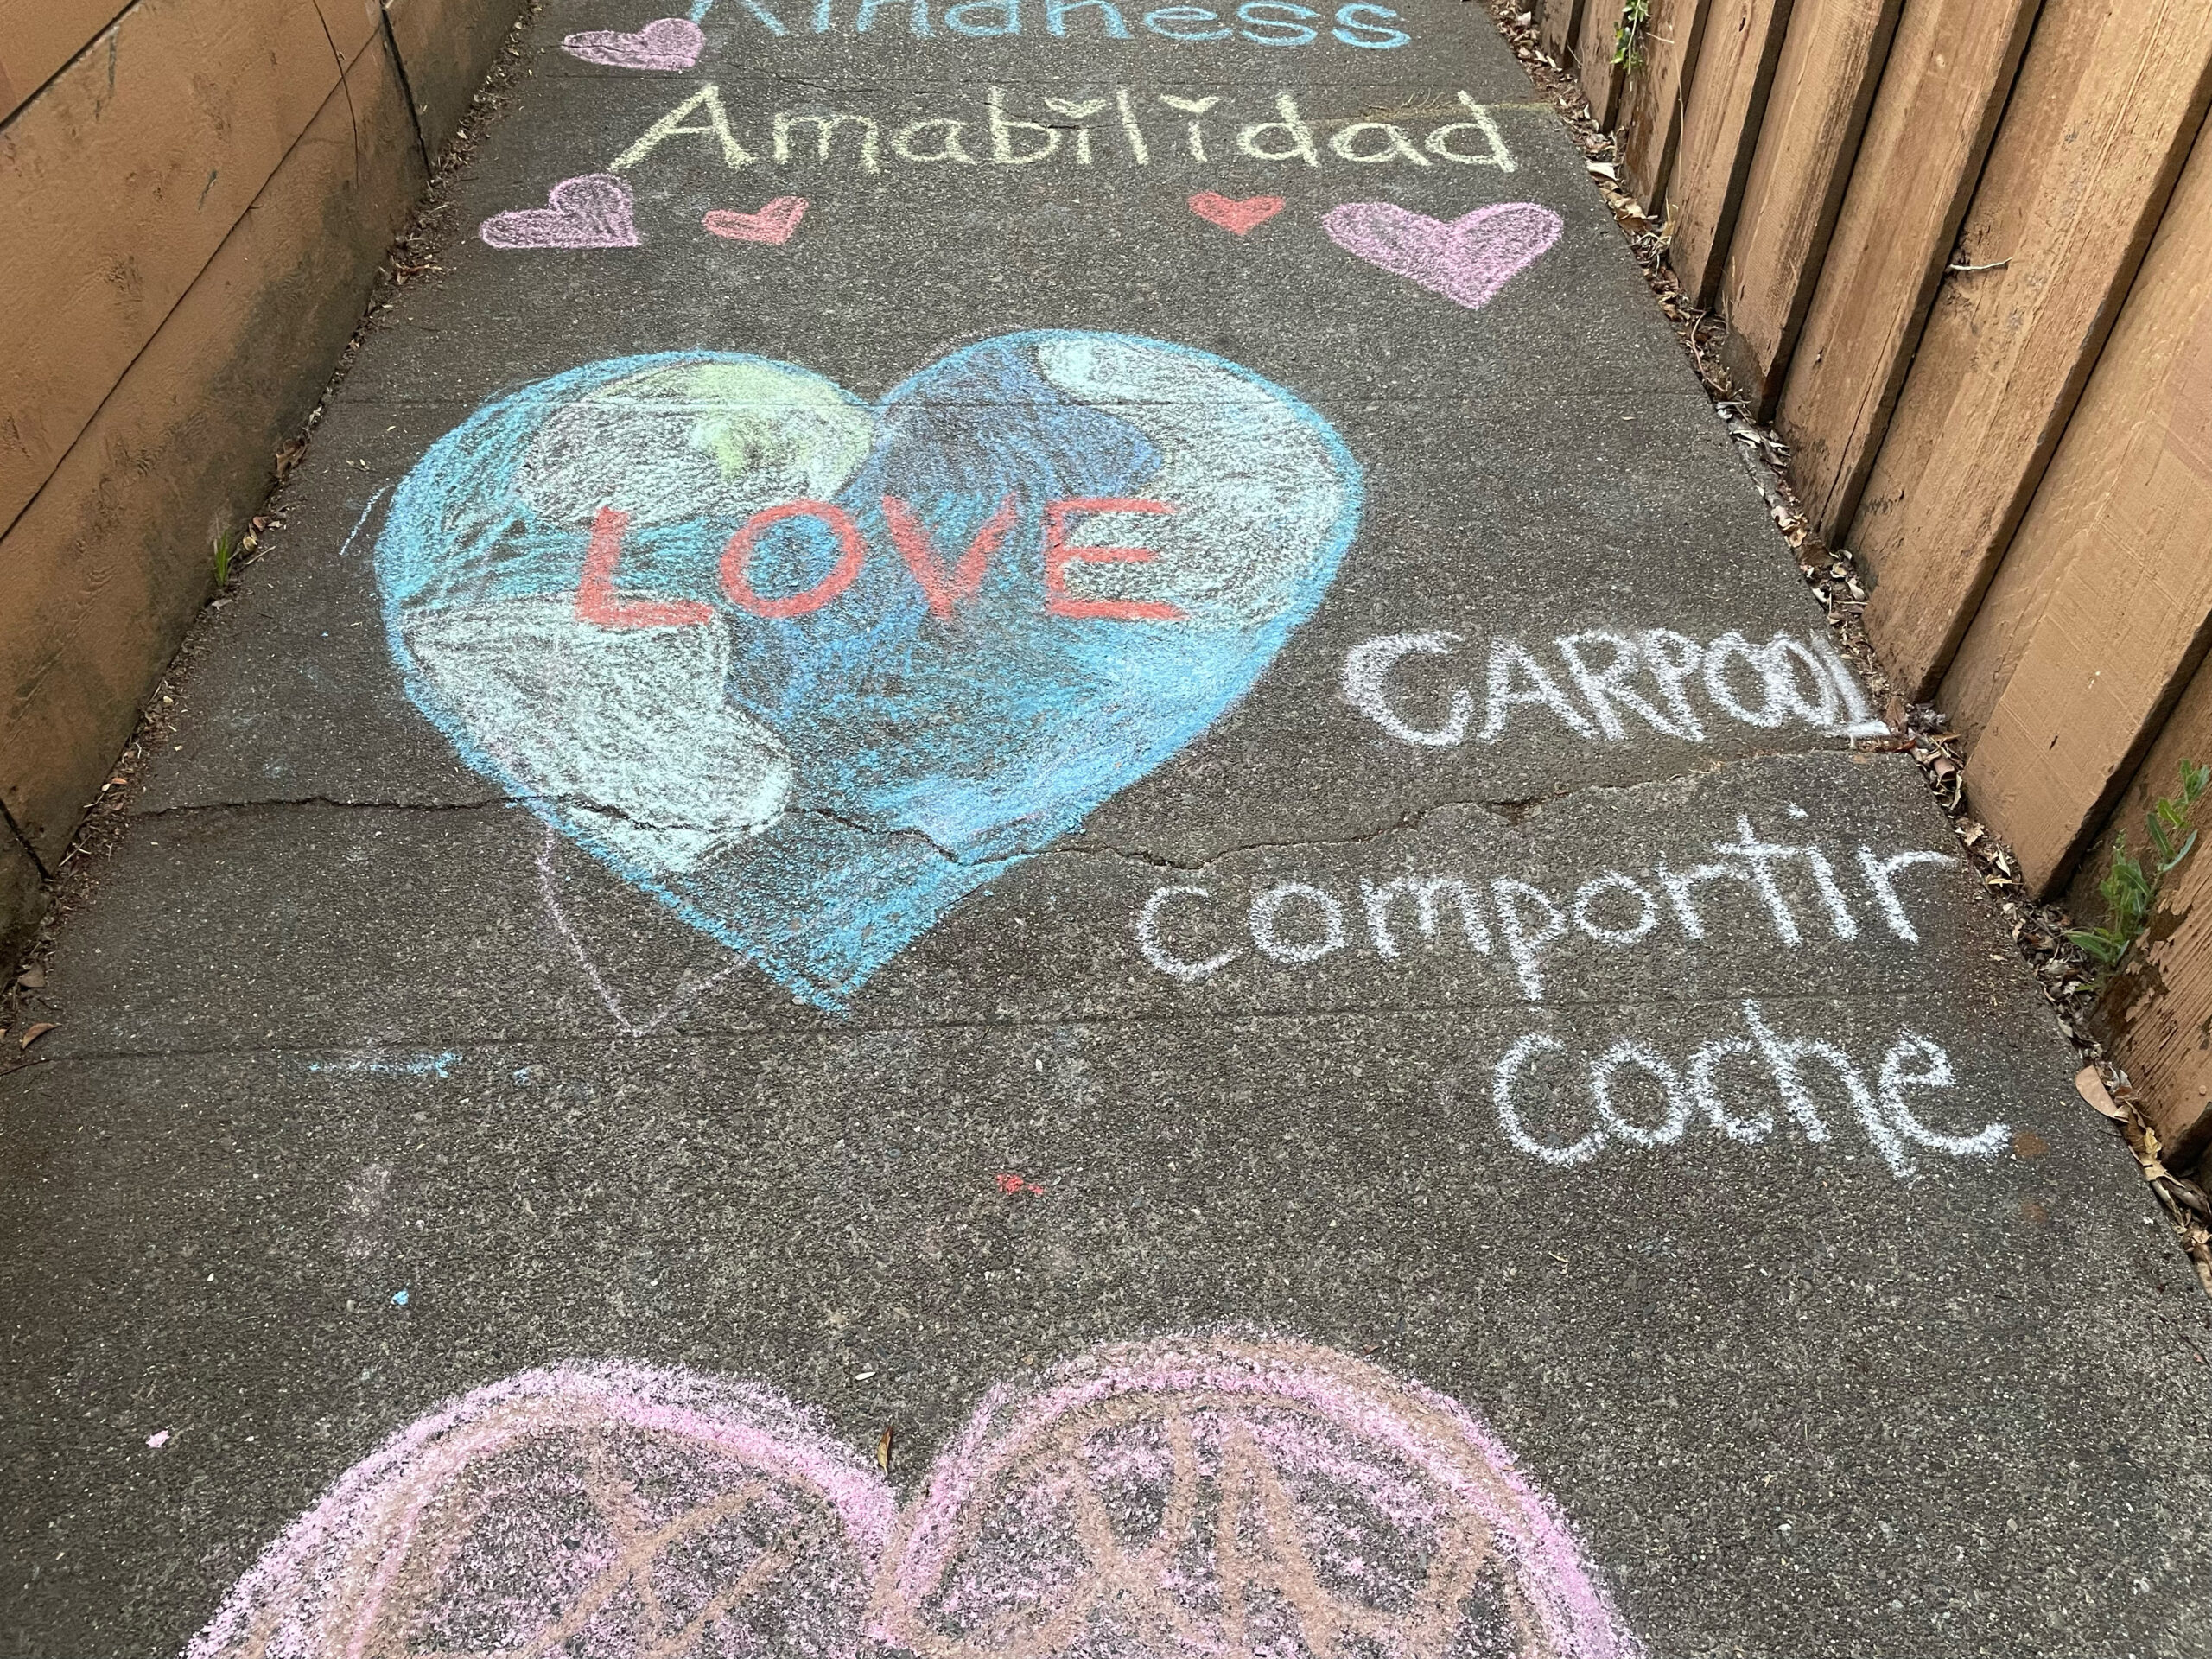 Kindness
Amabilidad
LOVE
CARPOOL
comportir
coche